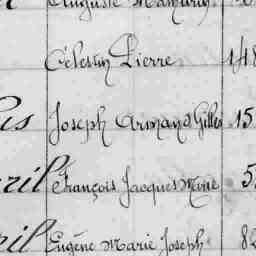 Auguste Mathurin
Célestin Pierre 148
Joseph Armand Gilles 15
François Jacques Marie 5
Eugène Marie Joseph 82